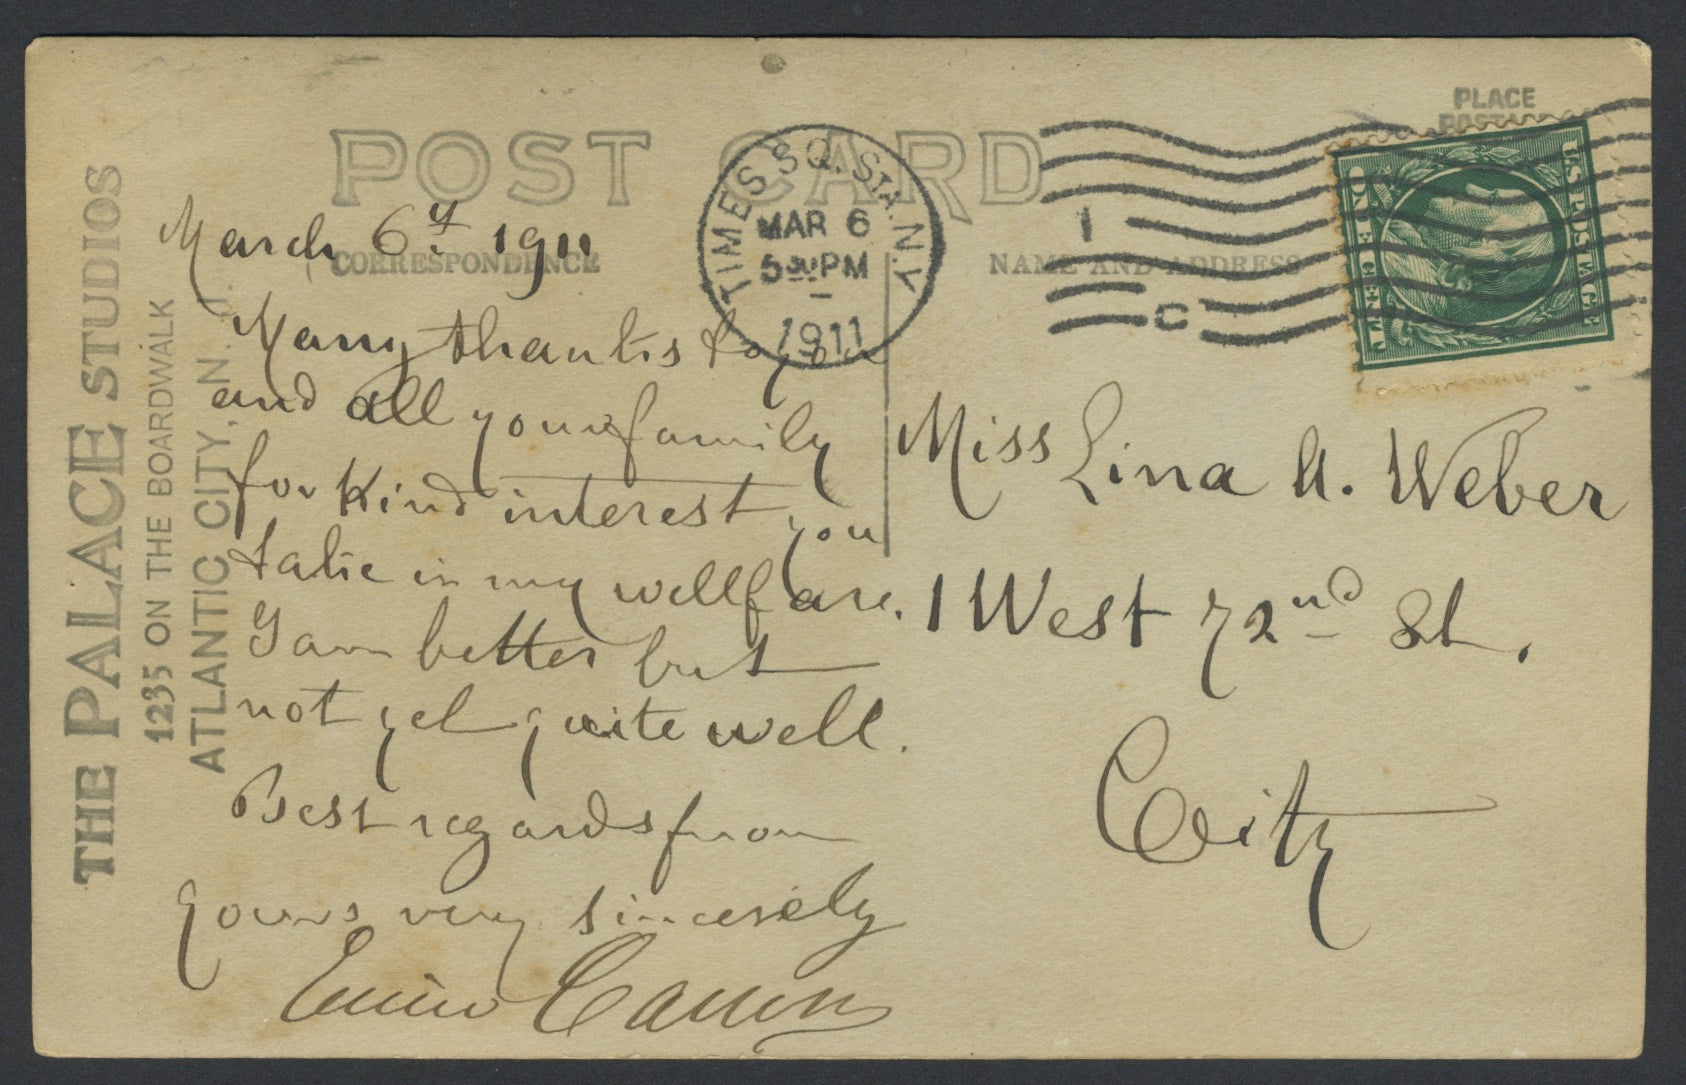 THE PALACE STUDIOS
1235 ON THE BOARDWALK
ATLANTIC CITY, N. J.
POST CARD
CORRESPONDENCE
NAME AND ADDRESS
PLACE
POSTAGE
TIMES SQ. STA. N.Y.
MAR 6
5 30 PM
1911
1
C
U.S. POSTAGE
ONE CENT
March 6th 1911
Many thanks to you
and all your family
for Kind interest you
take in my wellfare.
I am better but
not yet quite well.
Best regards from
yours very sincerely
Miss Lina A. Weber
1 West 72nd St.
City